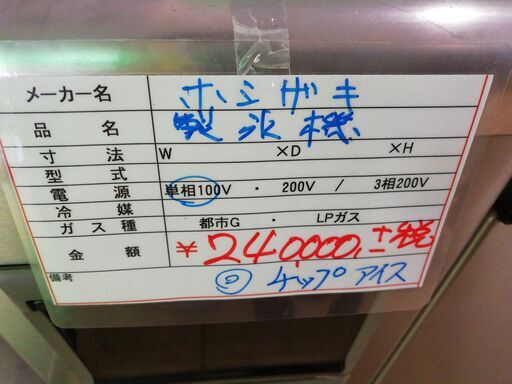 メーカー名 ホシザキ
品名 製氷機
寸法 W ×D ×H
型式
電源 単相100V ・ 200V / 3相200V
冷媒
ガス種 都市G ・ LPガス
金額 ¥240000,+税
備考 チップアイス